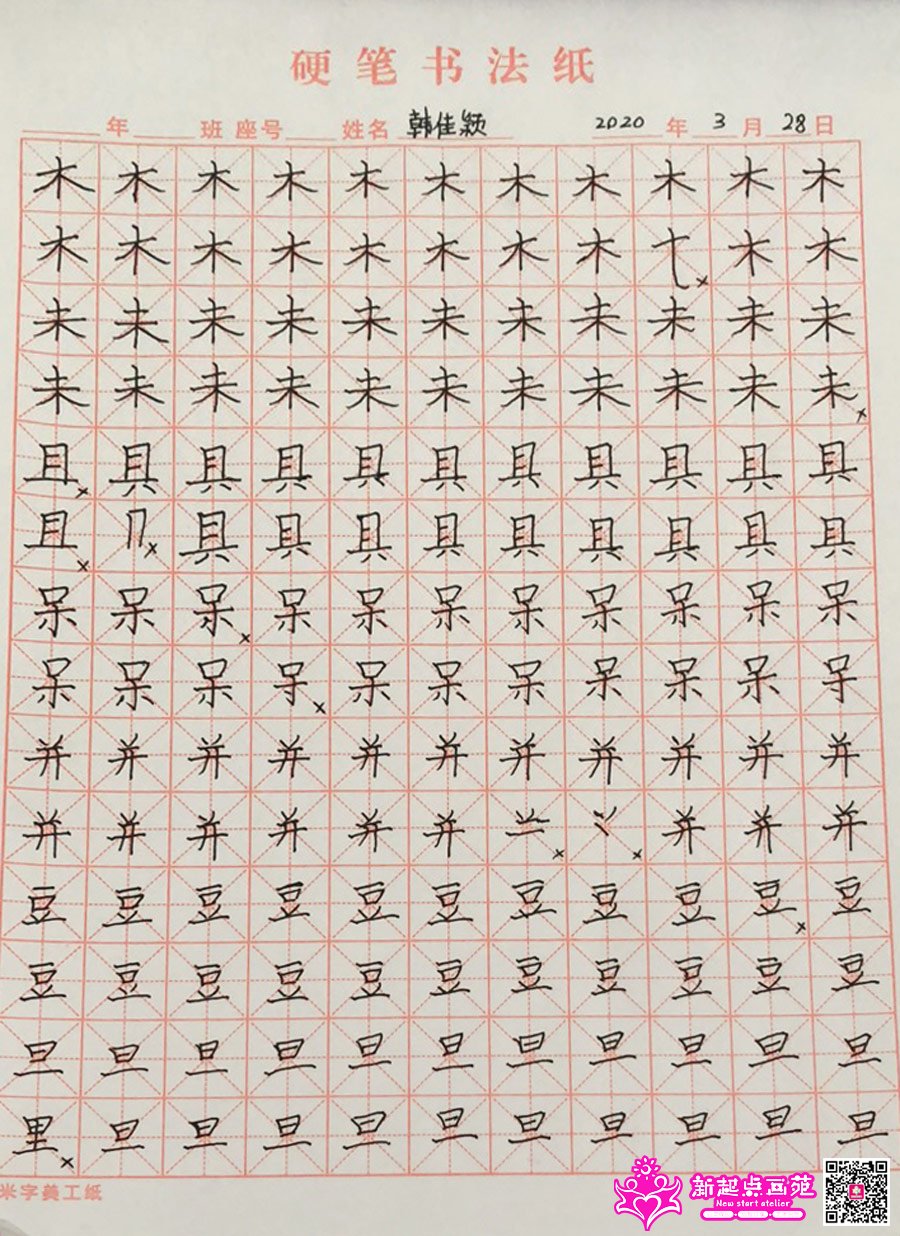 硬笔书法纸
年 班 座号 姓名 韩佳颖 2020 年 3 月 28 日
木 木 木 木 木 木 木 木 木 木 木
木 木 木 木 木 木 木 木 × 木 木
未 未 未 未 未 未 未 未 未 未 未
未 未 未 未 未 未 未 未 未 未 未 ×
且 × 具 具 具 具 具 具 具 具 具 具
且 × × 具 具 具 具 具 具 具 具 具
呆 呆 呆 × 呆 呆 呆 呆 呆 呆 呆 呆
呆 呆 呆 × 呆 呆 呆 呆 呆 呆
并 并 并 并 并 并 并 并 并 并 并
并 并 并 并 并 并 × × 并 并 并
豆 豆 豆 豆 豆 豆 豆 豆 豆 豆 × 豆
豆 豆 豆 豆 豆 豆 豆 豆 豆 豆 豆
旦 旦 旦 旦 旦 旦 旦 旦 旦 旦 旦
里 × 旦 旦 旦 旦 旦 旦 旦 旦 旦 旦
米字美工纸
新起点画苑
New start atelier